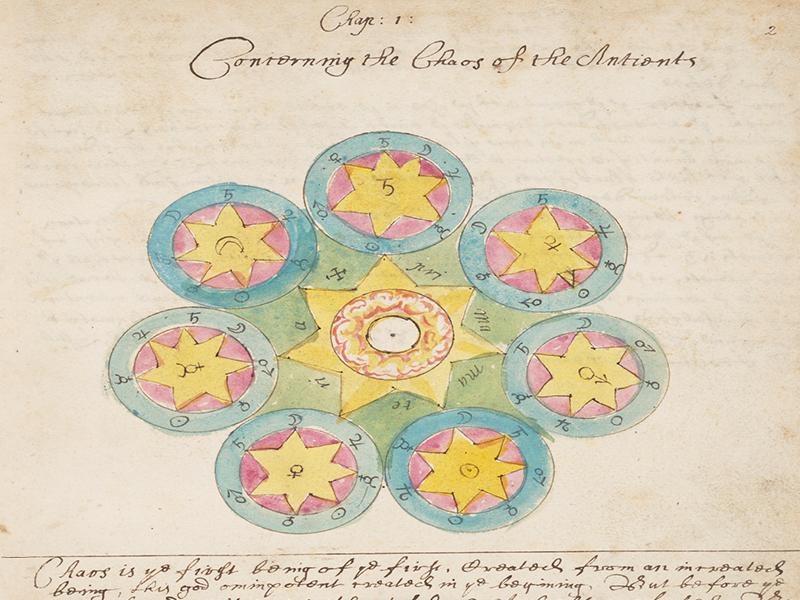 Chap: 1:
2
Concerning the Chaos of the Antients
pri
ma
ma
te
ri
a
Chaos is ye first being of ye first, Created from an increated
being, this god ominpotent created in ye begining, But before ye